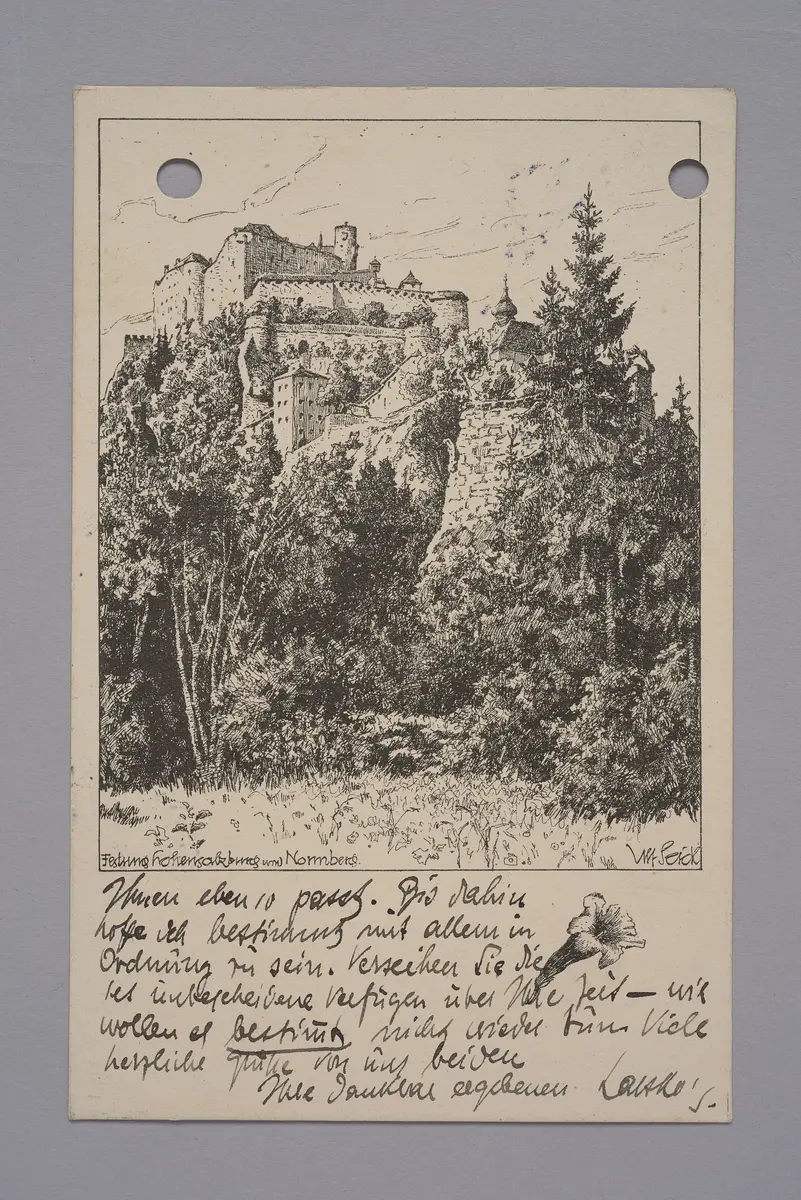 Festung Hohensalzburg und Nonnberg.
Ihnen ebenso passt. Bis dahin
hoffe ich bestimmt mit allem in
Ordnung zu sein. Verzeihen Sie die
ses unbescheidene Verfügen über Ihre Zeit — wir
wollen es bestimmt nicht wieder tun. Viele
herzliche Grüße von uns beiden
Ihre dankbar ergebenen Latzko's.